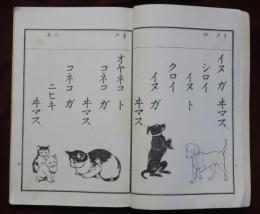 イヌ ガ ヰマス。
シロイ
イヌ ト
クロイ
イヌ ガ
ヰマス。
オヤネコ ト
コネコ ガ
ヰマス。
コネコ ガ
ニヒキ
ヰマス。